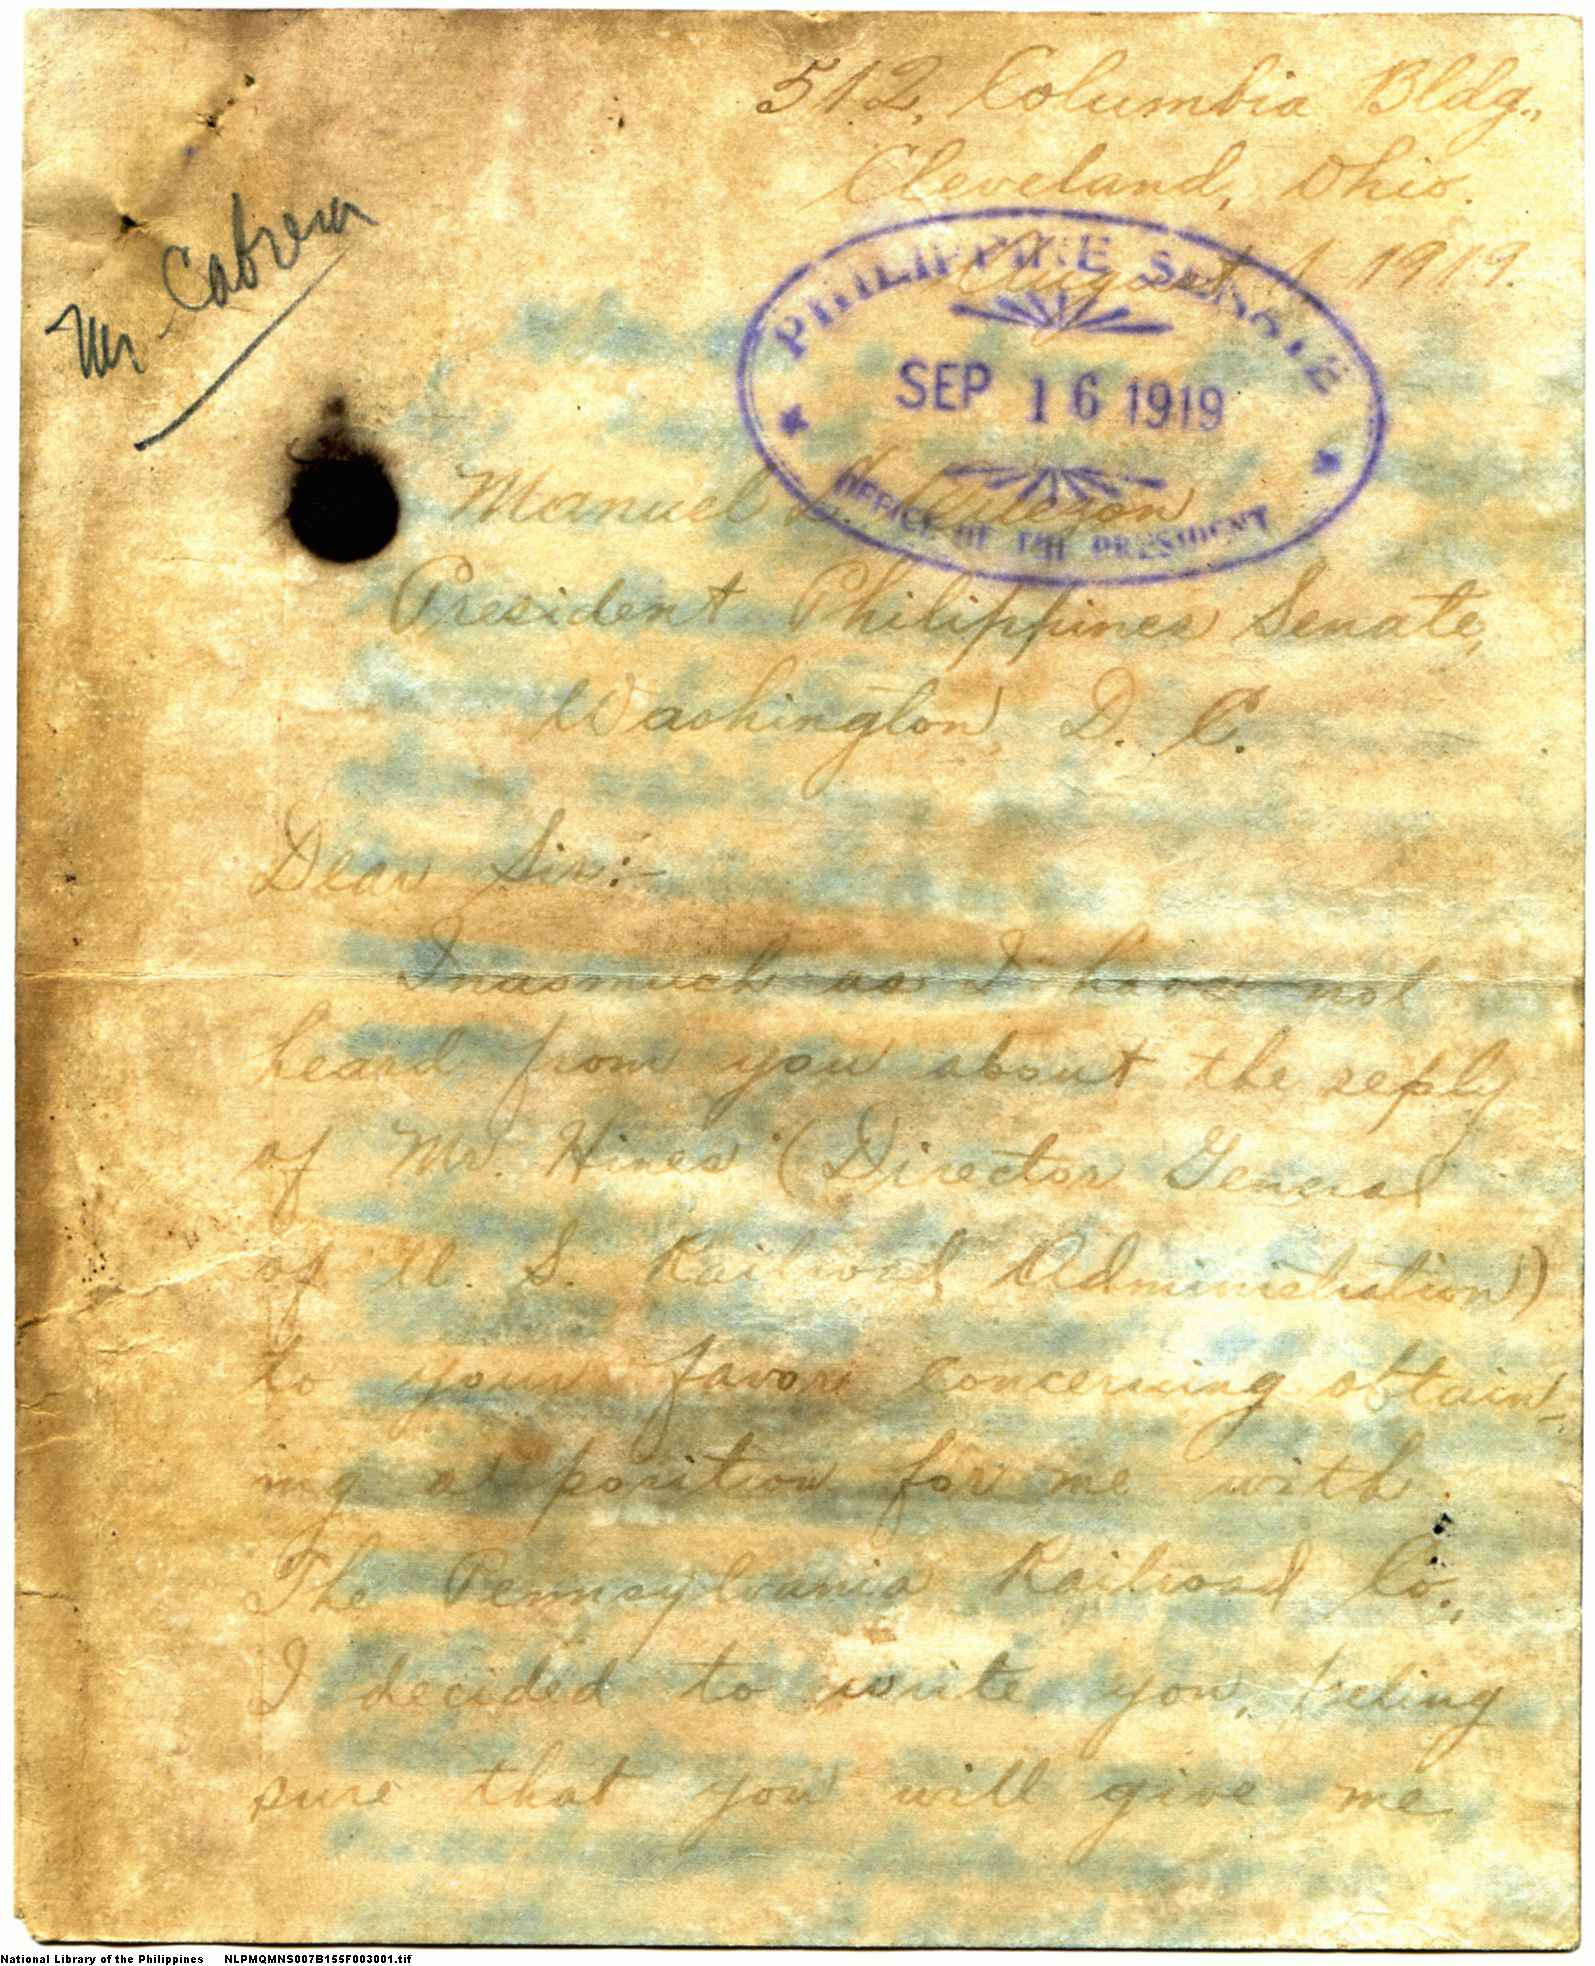 512, Columbia Bldg.,
Cleveland, Ohio.
August 1 1919.
Mr Cabrera
PHILIPPINE SENATE
SEP 16 1919
OFFICE OF THE PRESIDENT
Manuel L. Quezon
President Philippines Senate,
Washington, D. C.
Dear Sir:-
Inasmuch as I have not
heard from you about the reply
of Mr. Hines (Director General
of U. S. Railroad Administration)
to your favor concerning obtain-
ing a position for me with
The Pennsylvania Railroad Co.,
I decided to write you, feeling
sure that you will give me
National Library of the Philippines NLPMQMNS007B155F003001.tif